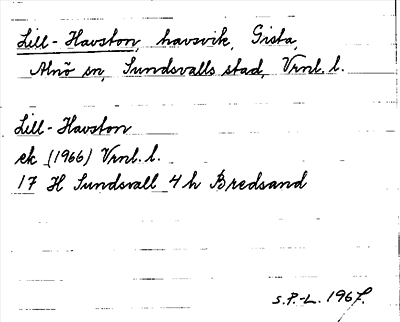 Lill-Havston, havsvik, Gista,
Alnö sn, Sundsvalls stad, Vrnl. l.
Lill-Havston
ek (1966) Vrnl. l.
17 H Sundsvall 4 h Bredsand
S.P.-L. 1967.